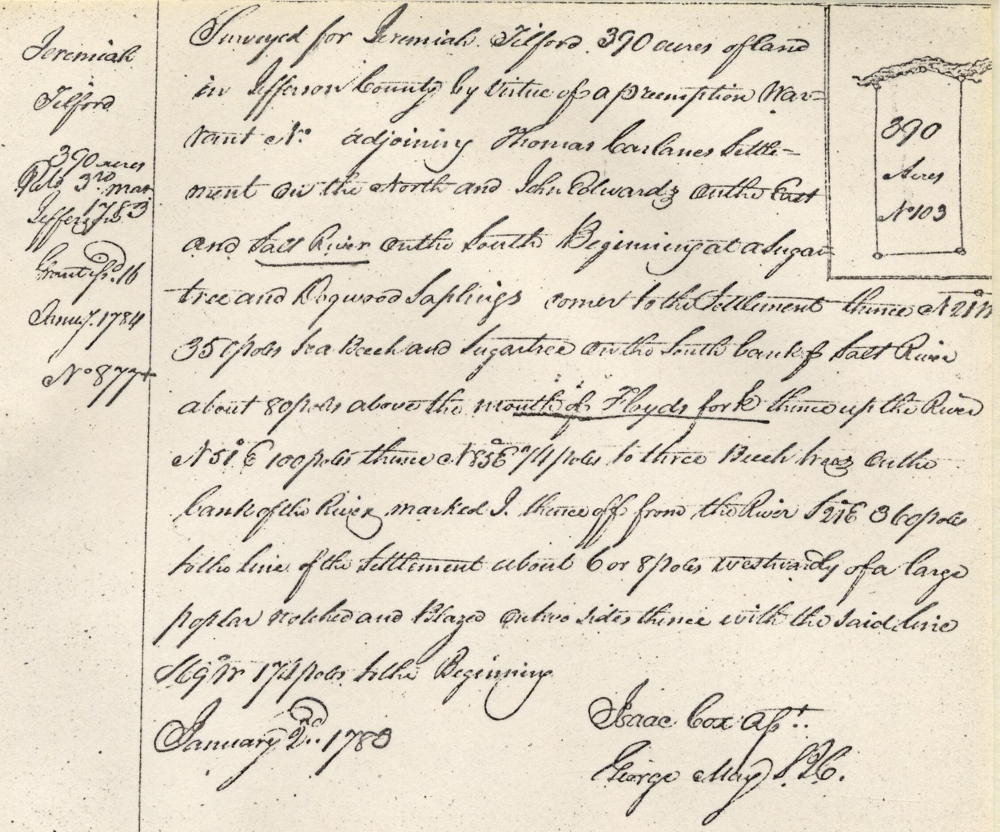 Jeremiah
Tilford
390 acres
3rd Mar
1783
Grant issd. 16
Jany. 1784
No 877
Surveyed for Jeremiah Tilford 390 acres of land
in Jefferson County by virtue of a preemption War-
rant No. adjoining Thomas Carlanes Settle-
ment on the North and John Edwards on the East
and Salt River on the South Beginning at a Sugar
tree and Dogwood Saplings corner to the Settlement thence N 21 W
350 poles to a Beech and Sugartree on the South bank of Salt River
about 80 poles above the mouth of Floyds fork thence up the River
N 51° E 100 poles thence N 85 E 74 poles to three Beech trees on the
bank of the River marked I. thence off from the River S 21 E 360 poles
to the line of the Settlement about 6 or 8 poles westwardly of a large
poplar notched and Blazed on two sides thence with the said line
174 poles to the Beginning
January 2nd 1783
Isaac Cox Ast.
George May S.J.C.
390
Acres
No 103